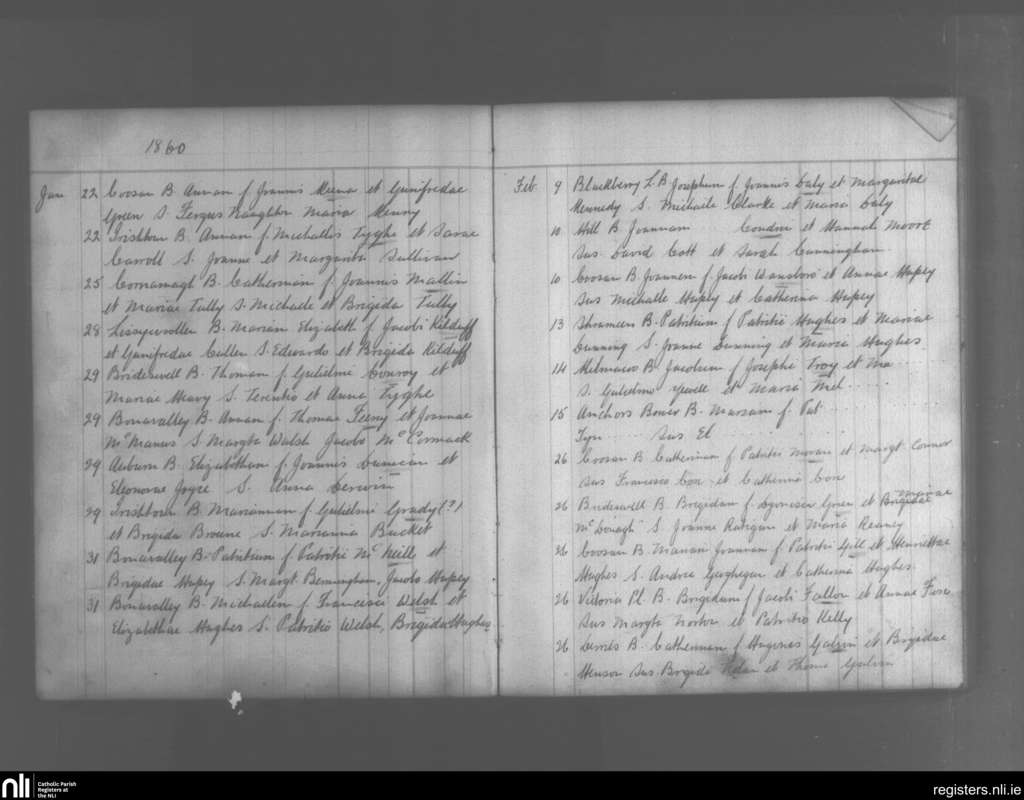 1860
Jan 22 Coosan B. Annam f. Joannis Keena et Gunifredae
Green S. Fergus Naughton Maria Kenny
22 Irishtown B. Annam f. Michaelis Tyghe et Sarae
Carroll S. Joanne et Margarita Sullivan
25 Cornamagh B. Catherinam f. Joannis Mallin
et Mariae Tully S. Michaele et Brigida Tully
28 Lissywollen B. Mariam Elizabeth f. Jacobi Kilduff
et Gunifredae Cullen S. Edwardo et Brigida Kilduff
29 Brideswell B. Thomam f. Gulielmi Conroy et
Mariae Heavy S. Terentio et Anna Tyghe
29 Bonavalley B. Annam f. Thomae Feeny et Joannae
McManus S. Margta Walsh Jacobo McCormack
29 Auburn B. Elizabetham f. Joannis et
Eleonorae Joyce S. Anna
29 Irishtown B. Mariannam f. Gulielmi Grady (?)
et Brigida Browne S. Marianna Bucket
31 Bonavalley B. Patritium f. Patritii McNeill et
Brigidae Hupey S. Margt. Bermingham, Jacobo Hupey
31 Bonavalley B. Michaelem f. Francisci Welsh et
Elizabethae Hughes S. Patritio Welsh, Brigida Hughes
Feb. 9 Blackberry L. B. Josephum f. Joannis Daly et Margaritae
Kennedy S. Michaele Clarke et Maria Daly
10 Hill B. Joannam Condron et Hannah Moore
Sus. David Cott et Sarah Cunningham
10 Coosan B. Joannem f. Jacobi Wansboro et Annae Hupey
Sus Michaele Hupey et Catherina Hupey
13 Shrameen B. Patritium f. Patritii Hughes et Mariae
Dunning S. Joanne Dunning et Maria Hughes
14 Kilmacoo B. Jacobum f. Josephi Troy et Ma...
S. Gulielmo et Maria
15 Anchors Bower B. Mariam f. Pat
Tyn..... Sus El
26 Coosan B Catherinam f Patritii Moran et Margt. Connor
Sus Francisco Cox et Catherina Cox
26 Brideswell B. Brigidam f. Green et Brigidae Mariae
McDonagh S. Joanne Ratigan et Maria Keaney
26 Coosan B. Mariam Joannam f. Patritii Gill et Henriettae
Hughes S. Andrea Geoghegan et Catherina Hughes
26 Victoria Pl. B. Brigidam f Jacobi Fallon et Annae
Sus Margta Norton et Patritio Kelly
26 B. Catherinam f Hugonis Galvin et Brigidae
Henson Sus Brigida et Thoma Galvin
nli Catholic Parish
Registers at
the NLI
registers.nli.ie